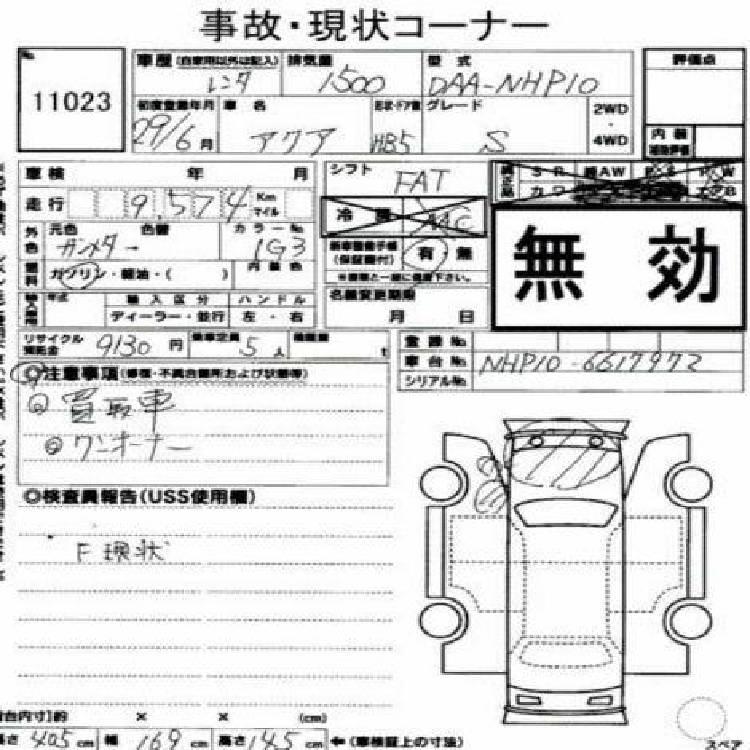 事故・現状コーナー
11023
車歴 (自家用以外は記入) レンタ 排気量 1500 型式 DAA-NHP10
評価点
初度登録年月 29/6月 車名 アクア 形状・ドア数 HB5 グレード S 2WD・4WD
内装
補助評価
車検 年 月 シフト FAT
走行 9,574 Km マイル 冷房 AAC
外色 元色 ガンメター 色替 カラーNo. 1G3
新車整備手帳 (保証書付) 有 無
燃料 ガソリン・軽油・( ) 内装色
無効
年式 輸入区分 ハンドル 名義変更期限
ディーラー・並行 左・右 月 日
リサイクル預託金 9130円 乗車定員 5人 積載量 t
登録No.
車台No. NHP10-6617972
シリアルNo.
◎注意事項(修復・不具合箇所および状態等)
◎買取車
◎ワンオーナー
◎検査員報告(USS使用欄)
F 現状
荷台内寸]約 × × (cm)
長さ 405cm 幅 169cm 高さ 145cm ←(車検証上の寸法)
スペア